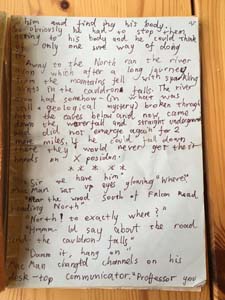 him and find him his body.
so obviously he had to stop where
to his body and he could think
only one way of doing
Away to the North ran the river
which after a long journey
from the mountains fell with sparkling
in the cauldron falls. The river
had somehow (in what was
still a geological mystery) broken through
into the caves below and now came
down the waterfall and straight underground
and did not emerge again for 2
more miles, if he could fall down
there they would never get their
hands on X posidon.
* * * * *
"Sir we have him"
The Man sat up eyes glowing "Where?"
the wood South of Falcon Road
heading North"
"North! to exactly where?"
"Hmmm I'd say about the road
and the cauldron falls"
"Damm it, hang on"
The Man changed channels on his
desk-top communicator. "Proffessor you